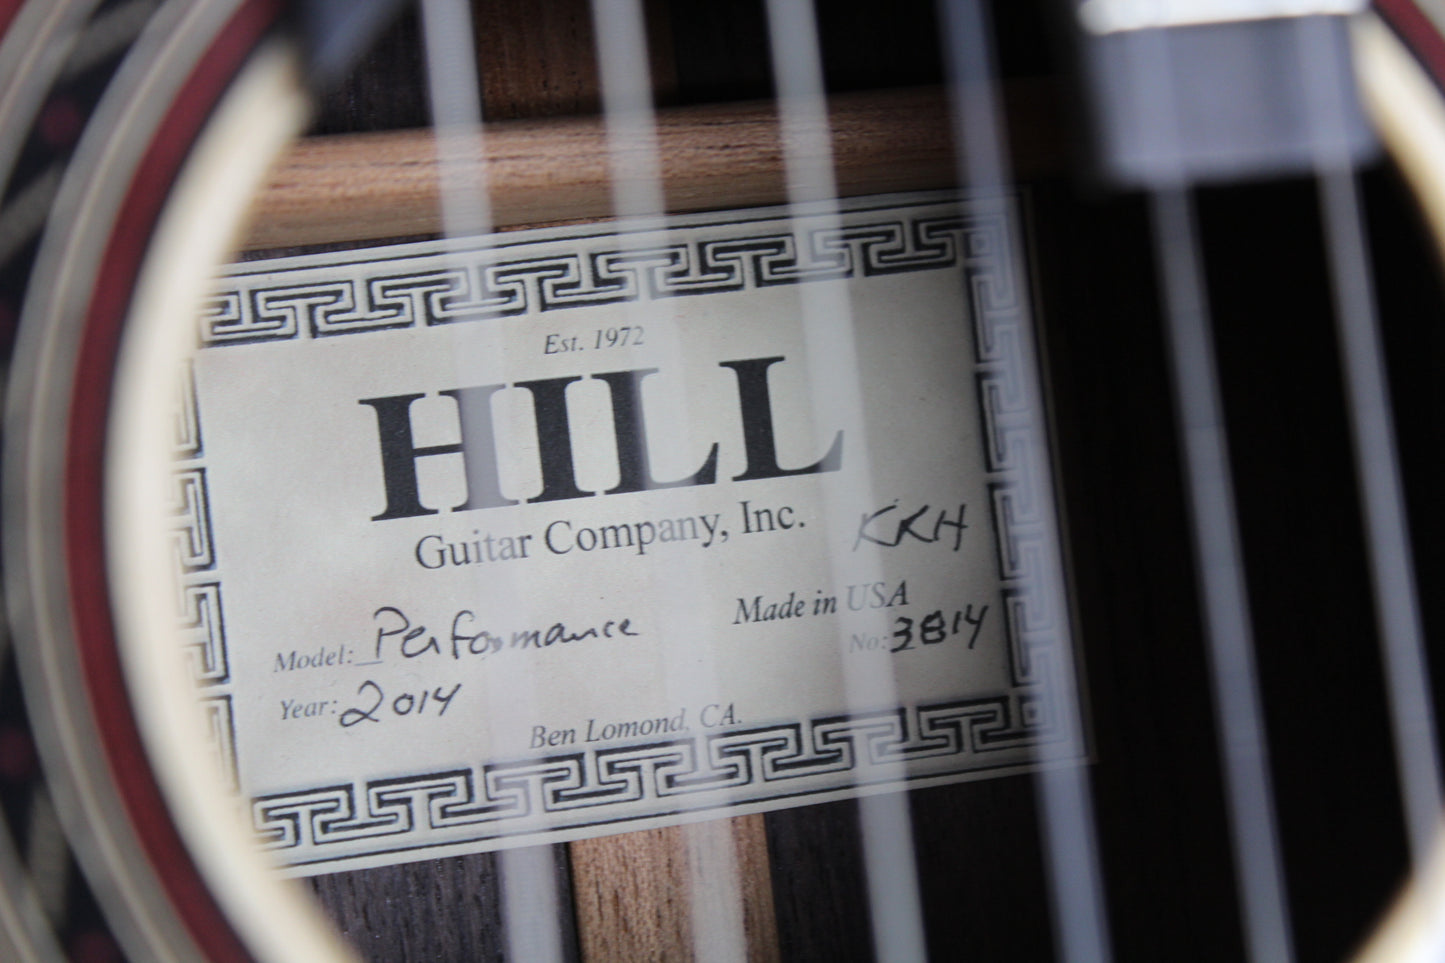 Est. 1972
HILL
Guitar Company, Inc.
KKH
Made in USA
Model: Performance
No: 3814
Year: 2014
Ben Lomond, CA.